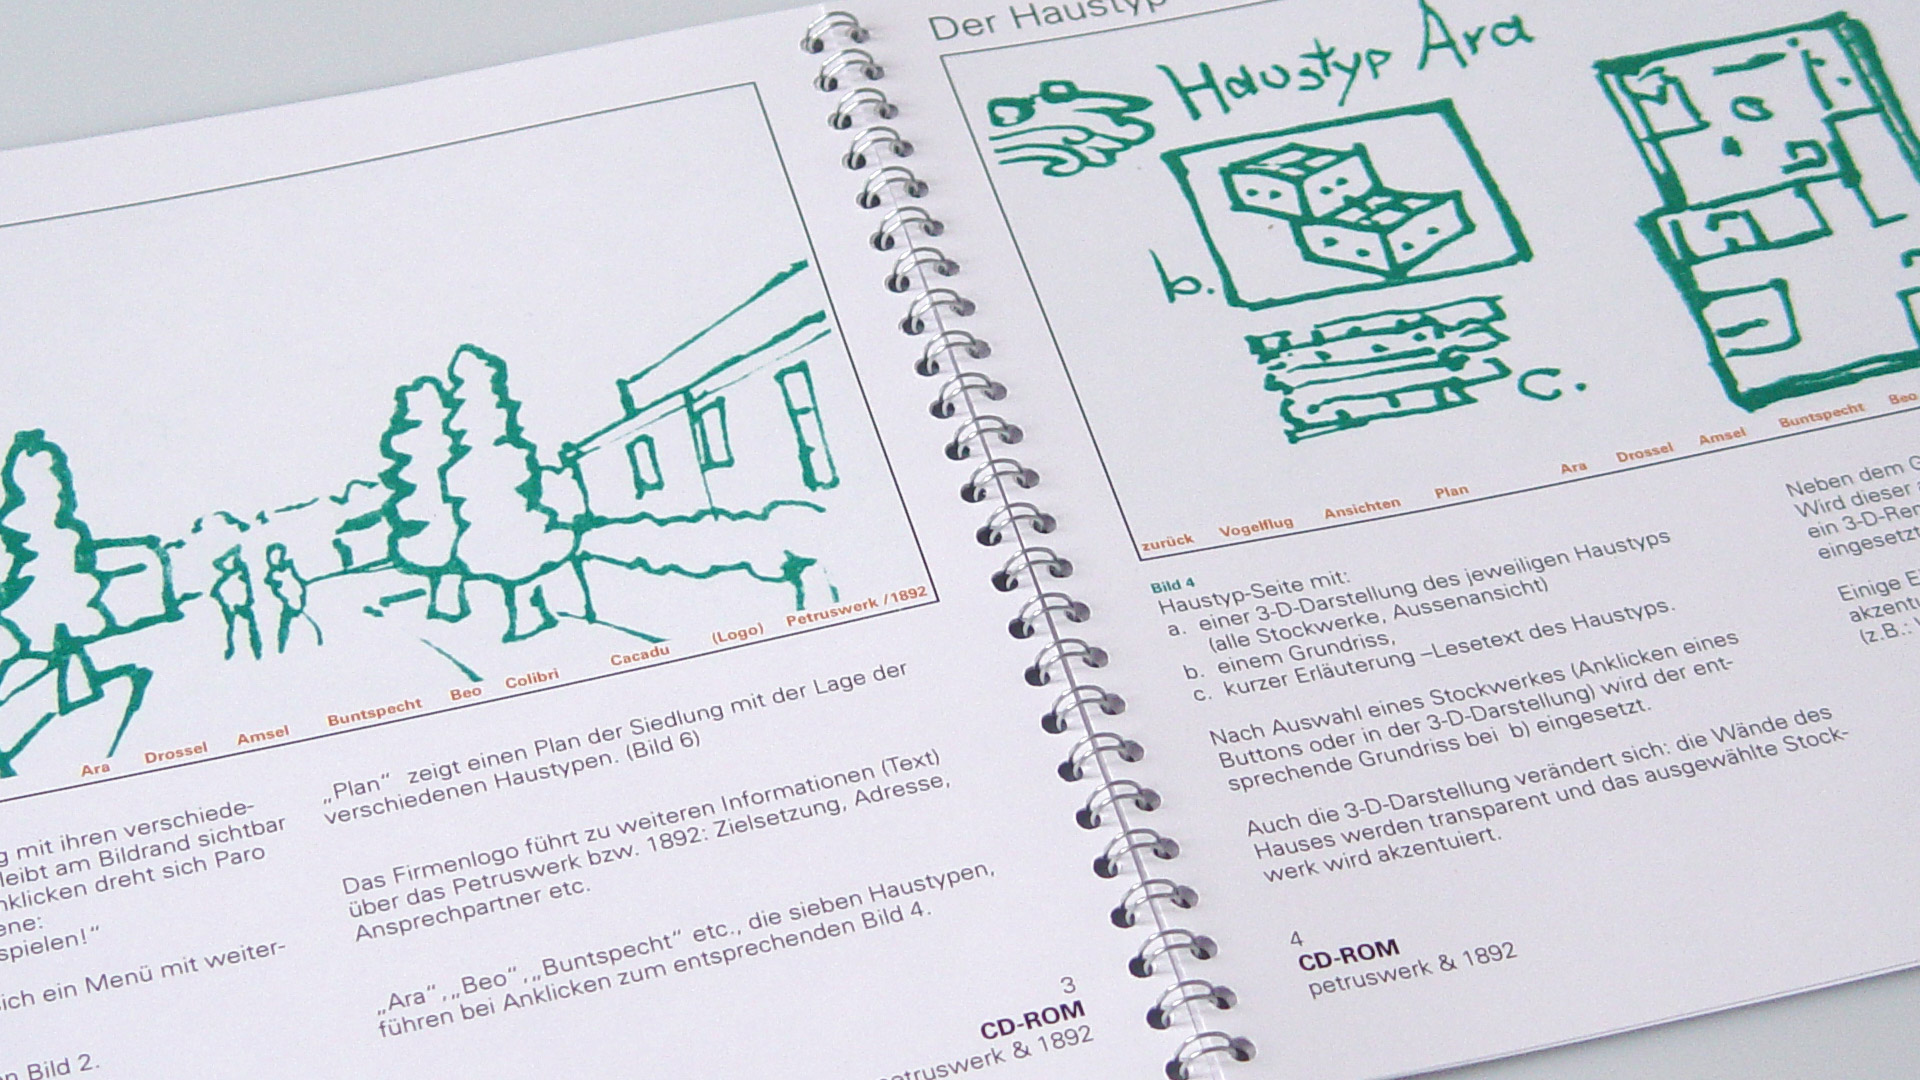 Petruswerk /1892
(Logo)
Cacadu
Colibri
Beo
Buntspecht
Amsel
Drossel
Ara
g mit ihren verschiede-
leibt am Bildrand sichtbar
nklicken dreht sich Paro
ene:
spielen!“
ich ein Menü mit weiter-
n Bild 2.
„Plan“ zeigt einen Plan der Siedlung mit der Lage der
verschiedenen Haustypen. (Bild 6)
Das Firmenlogo führt zu weiteren Informationen (Text)
über das Petruswerk bzw. 1892: Zielsetzung, Adresse,
Ansprechpartner etc.
„Ara“,„Beo“,„Buntspecht“ etc., die sieben Haustypen,
führen bei Anklicken zum entsprechenden Bild 4.
3
CD-ROM
etruswerk & 1892
Der Haustyp
Haustyp Ara
b.
c.
zurück Vogelflug Ansichten Plan Ara Drossel Amsel Buntspecht Beo
Bild 4
Haustyp-Seite mit:
a. einer 3-D-Darstellung des jeweiligen Haustyps
(alle Stockwerke, Aussenansicht)
b. einem Grundriss,
c. kurzer Erläuterung –Lesetext des Haustyps.
Nach Auswahl eines Stockwerkes (Anklicken eines
Buttons oder in der 3-D-Darstellung) wird der ent-
sprechende Grundriss bei b) eingesetzt.
Auch die 3-D-Darstellung verändert sich: die Wände des
Hauses werden transparent und das ausgewählte Stock-
werk wird akzentuiert.
Neben dem G
Wird dieser
ein 3-D-Ren
eingesetzt
Einige E
akzentu
(z.B.:
4
CD-ROM
petruswerk & 1892